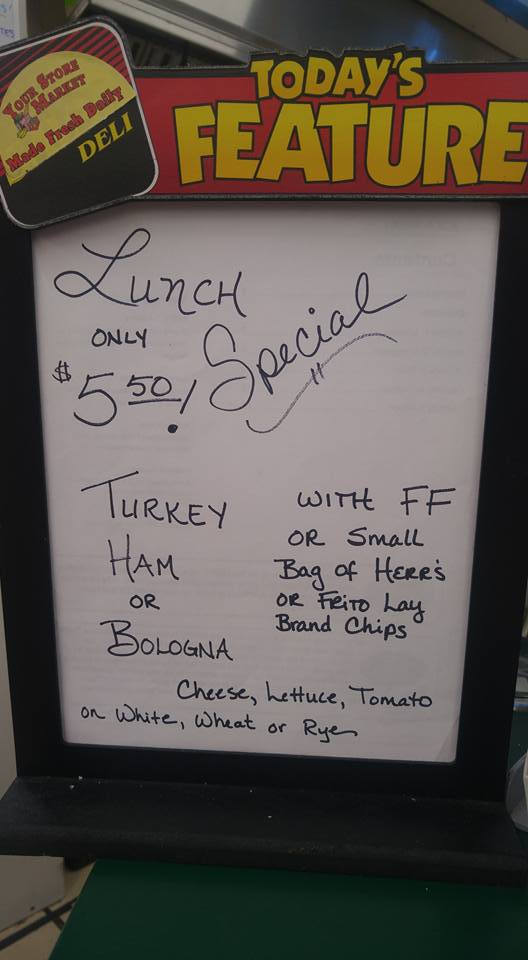 YOUR STORE
MARKET
Made Fresh Daily
DELI
TODAY'S
FEATURE
LUNCH
ONLY
$5.50!
Special
TURKEY
HAM
OR
BOLOGNA
WITH FF
OR Small
Bag of HERR'S
OR FRITO Lay
Brand Chips
Cheese, Lettuce, Tomato
on White, Wheat or Rye